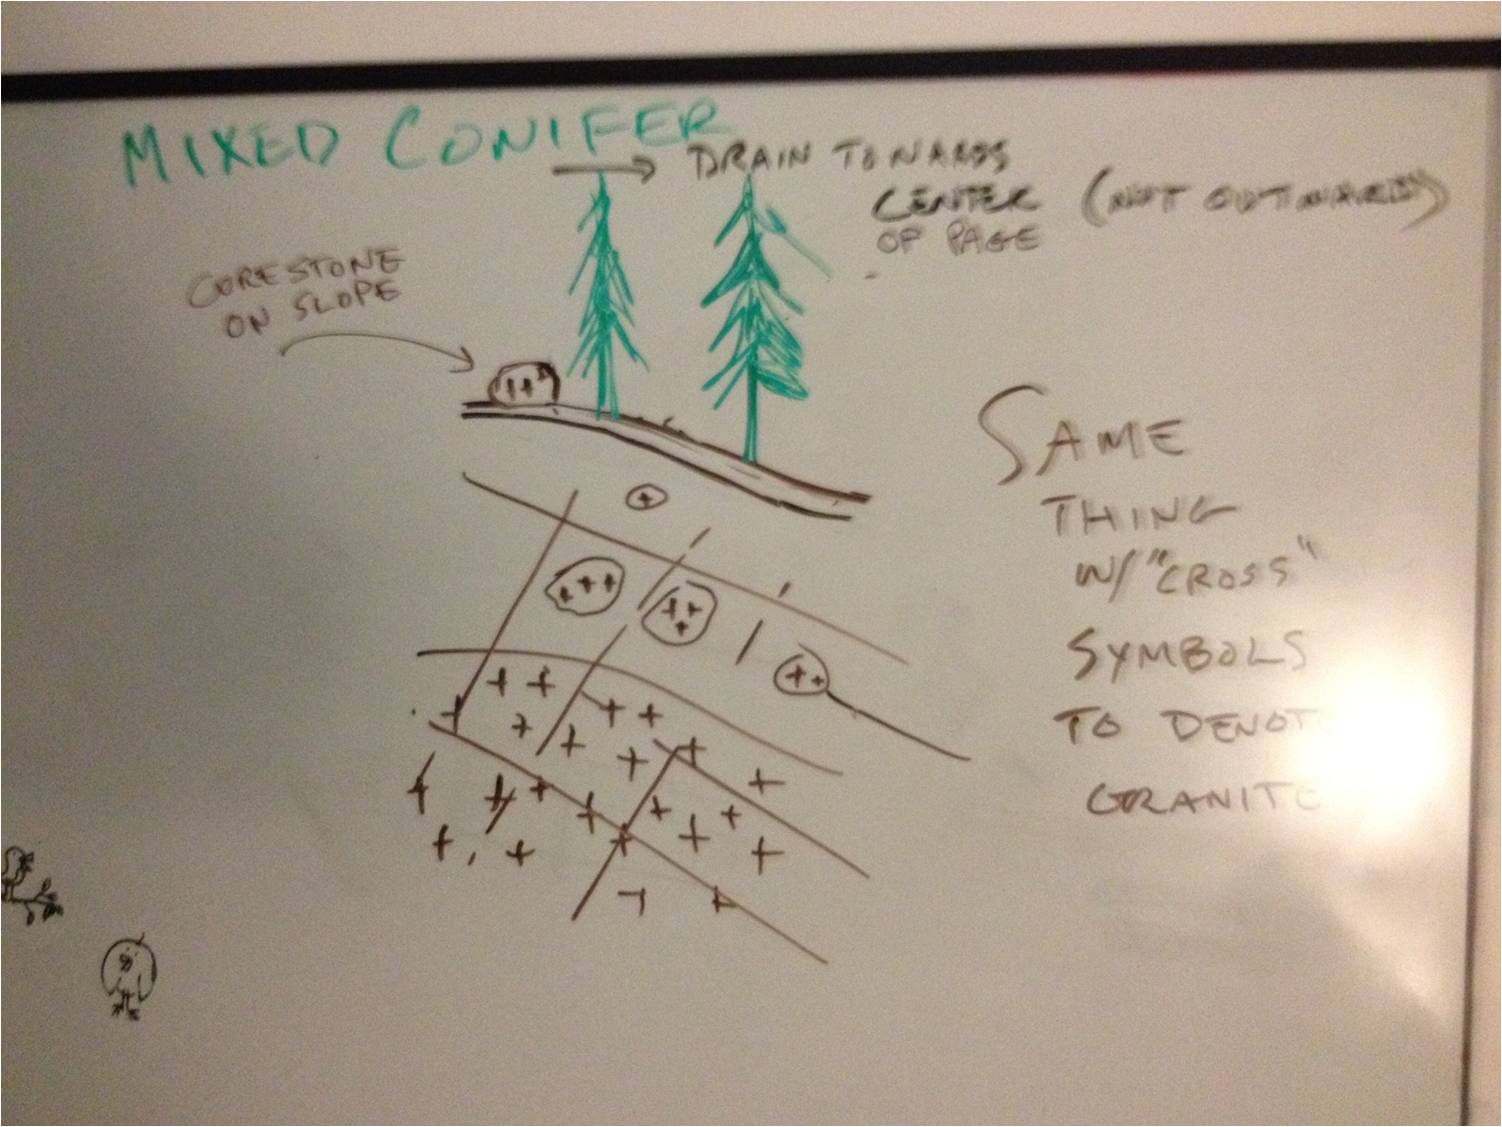 MIXED CONIFER
→ DRAIN TOWARDS
CENTER (NOT OUTWARDS)
OF PAGE
CORESTONE
ON SLOPE
SAME
THING
W/ "CROSS"
SYMBOLS
TO DENOTE
GRANITE